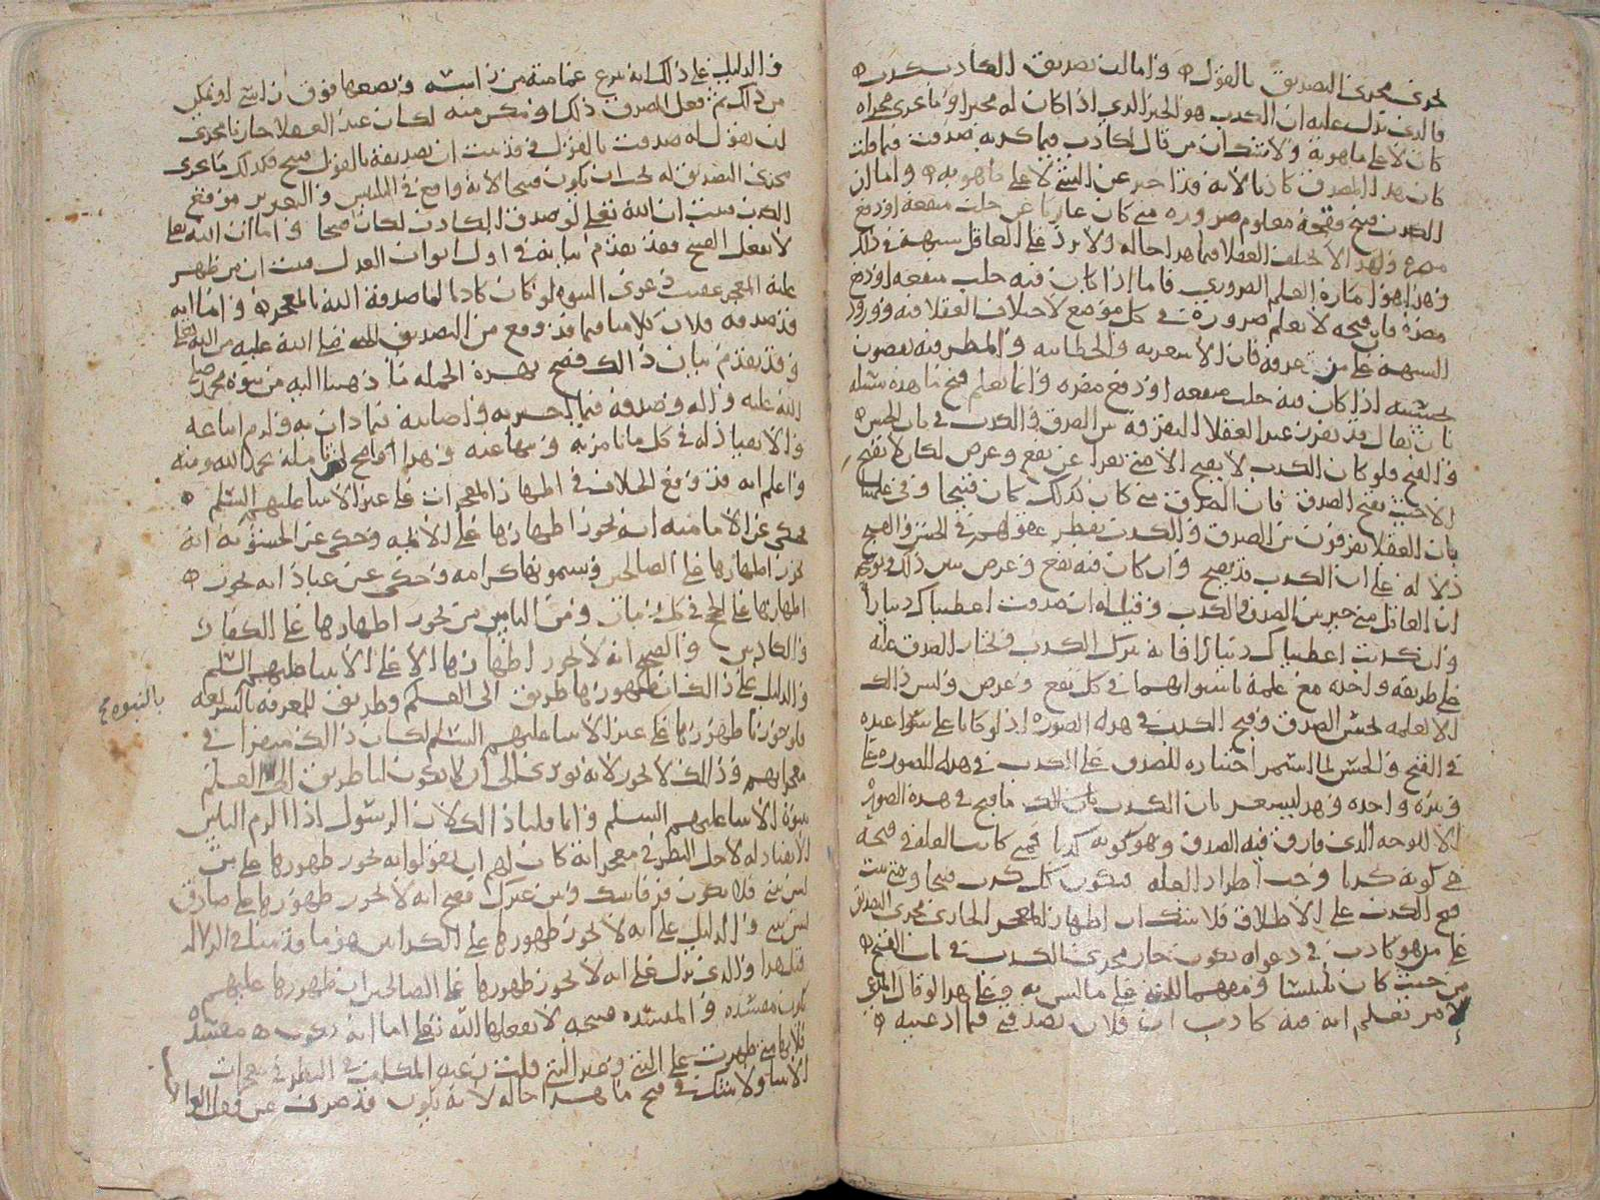 يجري مجرى التصديق بالقول واما ان تصديق الكاذب كذب
فالذي يدل عليه ان الكذب هو الخبر الذي اذا كان له مخبر او ما يجري مجراه
كان لا على ما هو به ولا شك ان من قال لكاذب فيما كذب به صدقت فيما قلت
كان هذا المصدق كاذبا لانه قد اخبر عن الشي لا على ما هو به واما ان
الكذب قبيح فقبحه معلوم ضرورة متى كان عاريا عن جلب منفعة او دفع
مضرة ولهذا لا يختلف العقلا فيما هذا حاله ولا يرد على العاقل شبهة في ذلك
وهذا هو امارة العلم الضروري فاما اذا كان فيه جلب منفعة او دفع
مضرة فان قبحه لا يعلم ضرورة في كل موضع لاختلاف العقلا فيه وورود
الشبهة على من عرفه فان الاشعرية والخطابية والمطرفية يقضون
بحسنه اذا كان فيه جلب منفعة او دفع مضرة وانما يعلم قبح ما هذه سبيله
بان يقال قد تقرر عند العقلا التفرقة بين الصدق والكذب في باب الحسن
والقبح فلو كان الكذب لا يقبح الا متى تعرا عن نفع وغرض لكان لا يقبح
الا حيث يقبح الصدق فان الصدق متى كان كذلك كان قبيحا وفي علمنا
بان العقلا يفرقون بين الصدق والكذب بفطر عقولهم في الحسن والقبح
دلالة على ان الكذب قد يقبح وان كان فيه نفع وغرض يبين ذلك ويوضحه
ان العاقل متى خير بين الصدق والكذب وقيل له ان صدقت اعطيناك دينارا
وان كذبت اعطيناك دينارا فانه يترك الكذب ويختار الصدق عليه
على طريقة واحدة مع علمه باستوائهما في كل نفع وغرض وليس ذلك
الا لعلمه بحسن الصدق وقبح الكذب في هذه الصورة اذ لو كانا على سوا عنده
في القبح والحسن لما استمر اختياره للصدق على الكذب في هذه الصورة على
وتيرة واحدة وهذا يشعر بان الكذب ما قبح في هذه الصورة
الا للوجه الذي فارق فيه الصدق وهو كونه كذبا فمتى كانت العلة في قبحه
هي كونه كذبا وجب اطراد العلة فيكون كل كذب قبيحا ومتى ثبت
قبح الكذب على الاطلاق فلا شك ان اظهار المعجز الجاري مجرى التصديق
على من هو كاذب في دعواه يكون جار مجرى الكذب في باب القبح
من حيث كان تلبيسا وموهما على ما ليس به وعلى هذا لو قال المدعي
لامر نعلم انه فيه كاذب ان فلان يصدقني فيما ادعيته
والدليل على ذلك انه ينزع عمامته من راسه ويضعها فوق راسي او يمكنني
من ذلك ثم فعل المصدق ذلك او مكن منه لكان عند العقلا جاريا مجرى
ان يقول له صدقت بالقول فقد ثبت ان تصديقه بالقول قبيح فكذلك ما يجري
مجرى التصديق له يجب ان يكون قبيحا لانه واقع في التلبيس والتغرير موقع
الكذب فثبت ان الله تعلى لو صدق الكاذب لكان قبيحا واما ان الله تعلى
لا يفعل القبيح فقد تقدم بيانه في اول ابواب العدل فثبت ان من ظهر
عليه المعجز عقيب دعوى النبوة لو كان كاذبا لما صدقه الله بالمعجز واما انه
قد صدقه فلان كلامنا فيما قد وقع من التصديق لنبيه صلى الله عليه من الله تعلى
وقد تقدم بيان ذلك فصح بهذه الجملة ما ذهبنا اليه من نبوة محمد صلى
الله عليه واله وصدقه فيما اخبر به واصابته فيما دان به ولزم اتباعه
والانقياد له في كل ما امر به ونها عنه وهذا واضح لمن تامله بحمد الله ومنه
واعلم انه قد وقع الخلاف في اظهار المعجزات على غير الانبيا عليهم السلم
فحكي عن الامامية انه يجوز اظهارها على الائمة وحكي عن الحشوية انه
يجوز اظهارها على الصالحين ويسمونها كرامة وحكي عن عباد انه يجوز
اظهارها على الحجج في كل زمان ومن الناس من يجوز اظهارها على الكفار
والكاذبين والصحيح انه لا يجوز اظهارها الا على الانبيا عليهم السلم
والدليل على ذلك ان ظهورها طريق الى العلم وطريق للمعرفة بالشريعة
بالنبوة
فلو جوزنا ظهورها على غير الانبيا عليهم السلم لكان ذلك منفرا في
معجزاتهم وذلك لا يجوز لانه يؤدي الى ان لا يكون لنا طريق الى العلم
بنبوة الانبيا عليهم السلم وانما قلنا ذلك لان الرسول اذا الزم الناس
الانقياد له لاجل النظر في معجزاته كان لهم ان يقولوا انه يجوز ظهورها على من
ليس بنبي فلا يكون فرقا بينك وبين غيرك فصح انه لا يجوز ظهورها على صادق
ليس بنبي والدليل على انه لا يجوز ظهورها على الكذابين هو ما قدمنا في الدلالة
قبل هذا والذي يدل على انه لا يجوز ظهورها على الصالحين ان ظهورها عليهم
يكون مفسدة والمفسدة قبيحة لا يفعلها الله تعلى اما انه يكون مفسدة
فلانها متى ظهرت على النبي وغير النبي قلت رغبة المكلفين في النظر في معجزات
الانبيا ولا شك في قبح ما هذا حاله لانه يكون قد صرف عن فعل الواجب